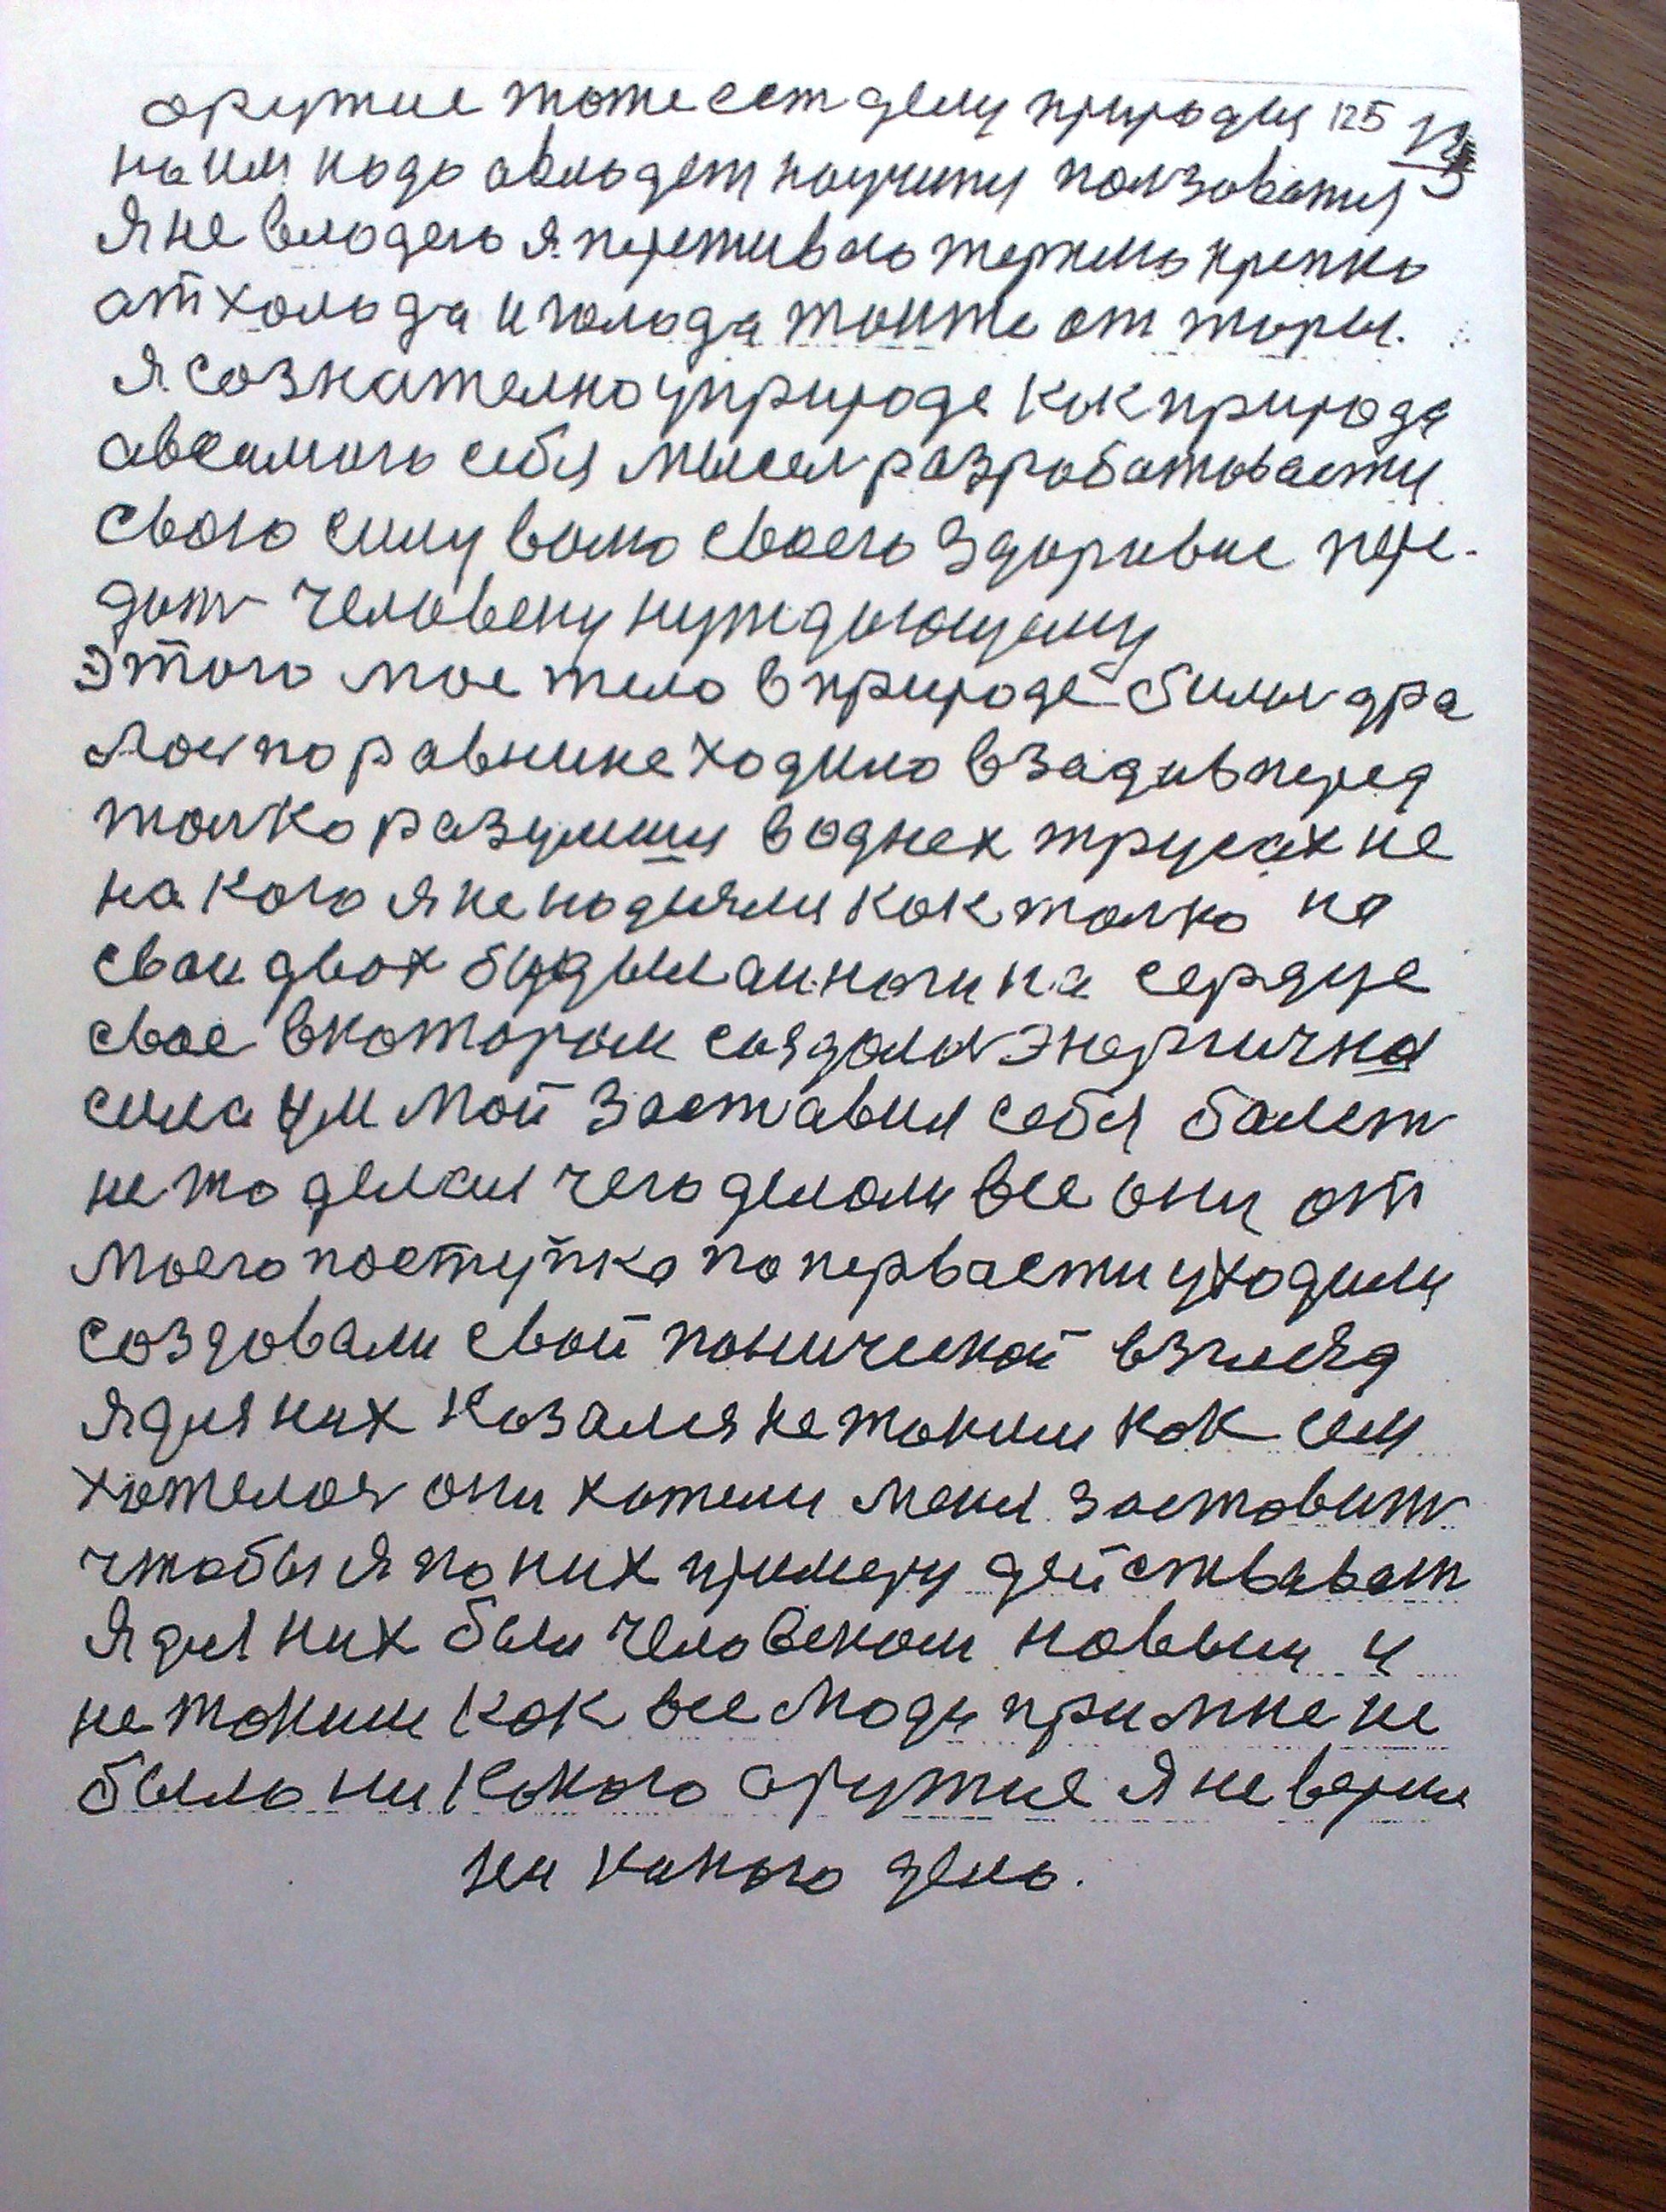 оружие тоже ест делу природы 125
на им надо авладет научится ползоватся
Я не владею я переживаю терплю крепко
ат холода и голода также от жары.
Я сознателно у природе как природа
а в самого себя мысел разработываести
свою силу волю своего здоровие пере-
дат человеку нуждающему
этого мое тело в природе била дра
лои по равнине ходило взад и вперед
толко разумши в однех трусах не
на кого я не надиялся как толко на
сваи двох ноги на сердце
свое в котором создалас энергична
сила ум мой заставил себя балет
не то делал чего делали все они от
моего поступка по первасти уходили
создовали свой панический взгляд
Я для них казался не таким как им
хателос они хатели меня заставит
чтобы я по них примеру действават
Я для них был человеком новым и
не таким как все люди при мне не
было ни какого аружие я не верил
ни какого дело.